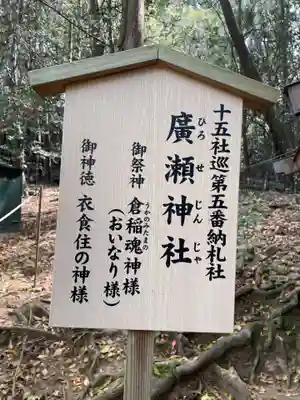 十五社巡第五番納札社
廣瀬神社
ひろせじんじゃ
御祭神 倉稲魂神様
うかのみたまの
(おいなり様)
御神徳 衣食住の神様